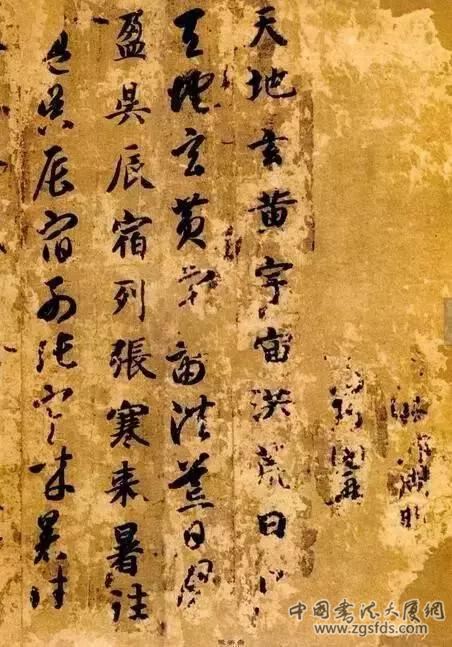 天地玄黄宇宙洪荒日
天地玄黄宇宙洪荒日月
盈昃辰宿列張寒来暑往
盈昃辰宿列張寒来暑往
中國書法大厦網
www.zgsfds.com